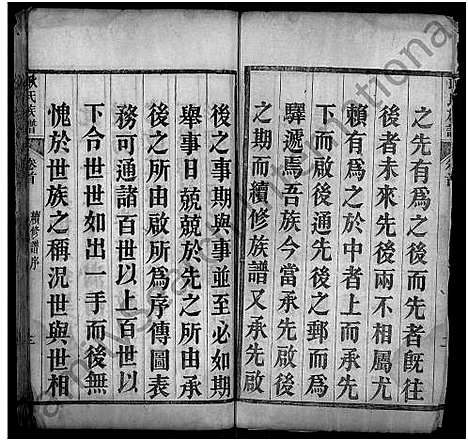 之先有爲之後而先者旣往
後者未來先後兩不相屬尤
賴有爲之於中者上而承先
下而啟後通先後之郵而爲
驛遞焉吾族今當承先啟
之期而續修族譜又承先啟
後之事期與事並至必如期
舉事日兢兢於先之所由承
後之所由啟所爲序傳圖表
務可通諸百世以上百世以
下合世世如出一手而後無
愧於世族之稱況世與世相
氏族譜
卷首
續修譜序
三